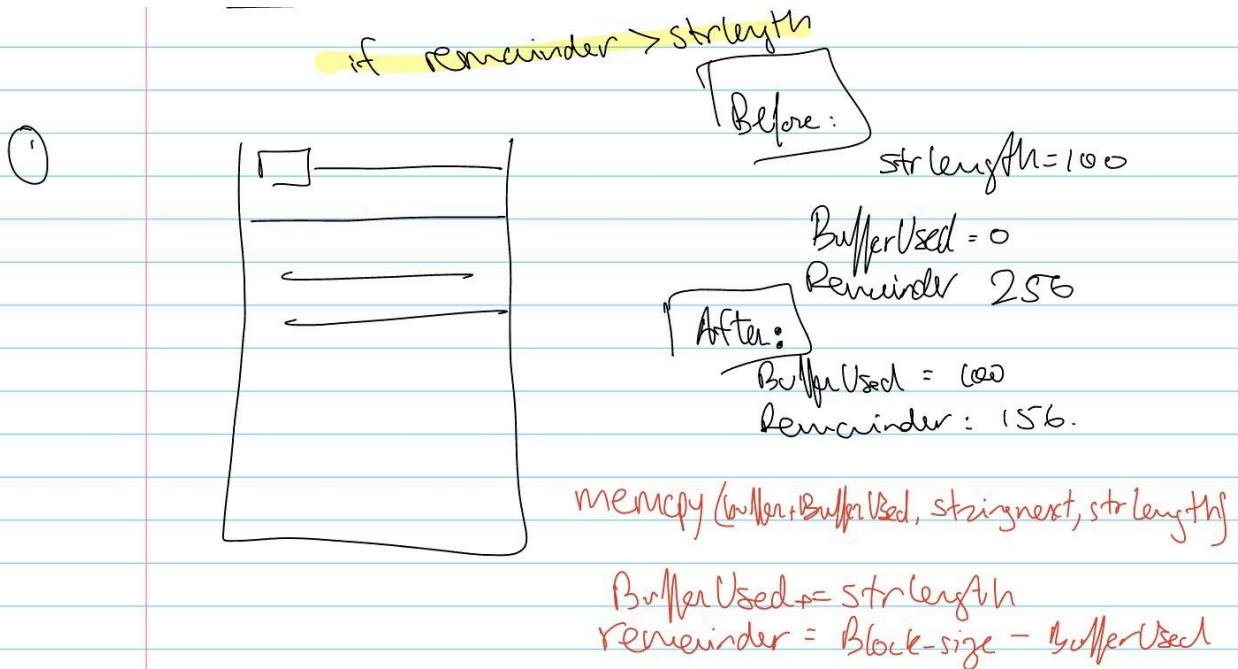 if remainder > strlength
Before:
strlength=100
BufferUsed = 0
Remainder 256
After:
BufferUsed = 100
Remainder: 156.
memcpy (buffer+BufferUsed, stringnext, strlength)
BufferUsed += strlength
remainder = Block-size - BufferUsed